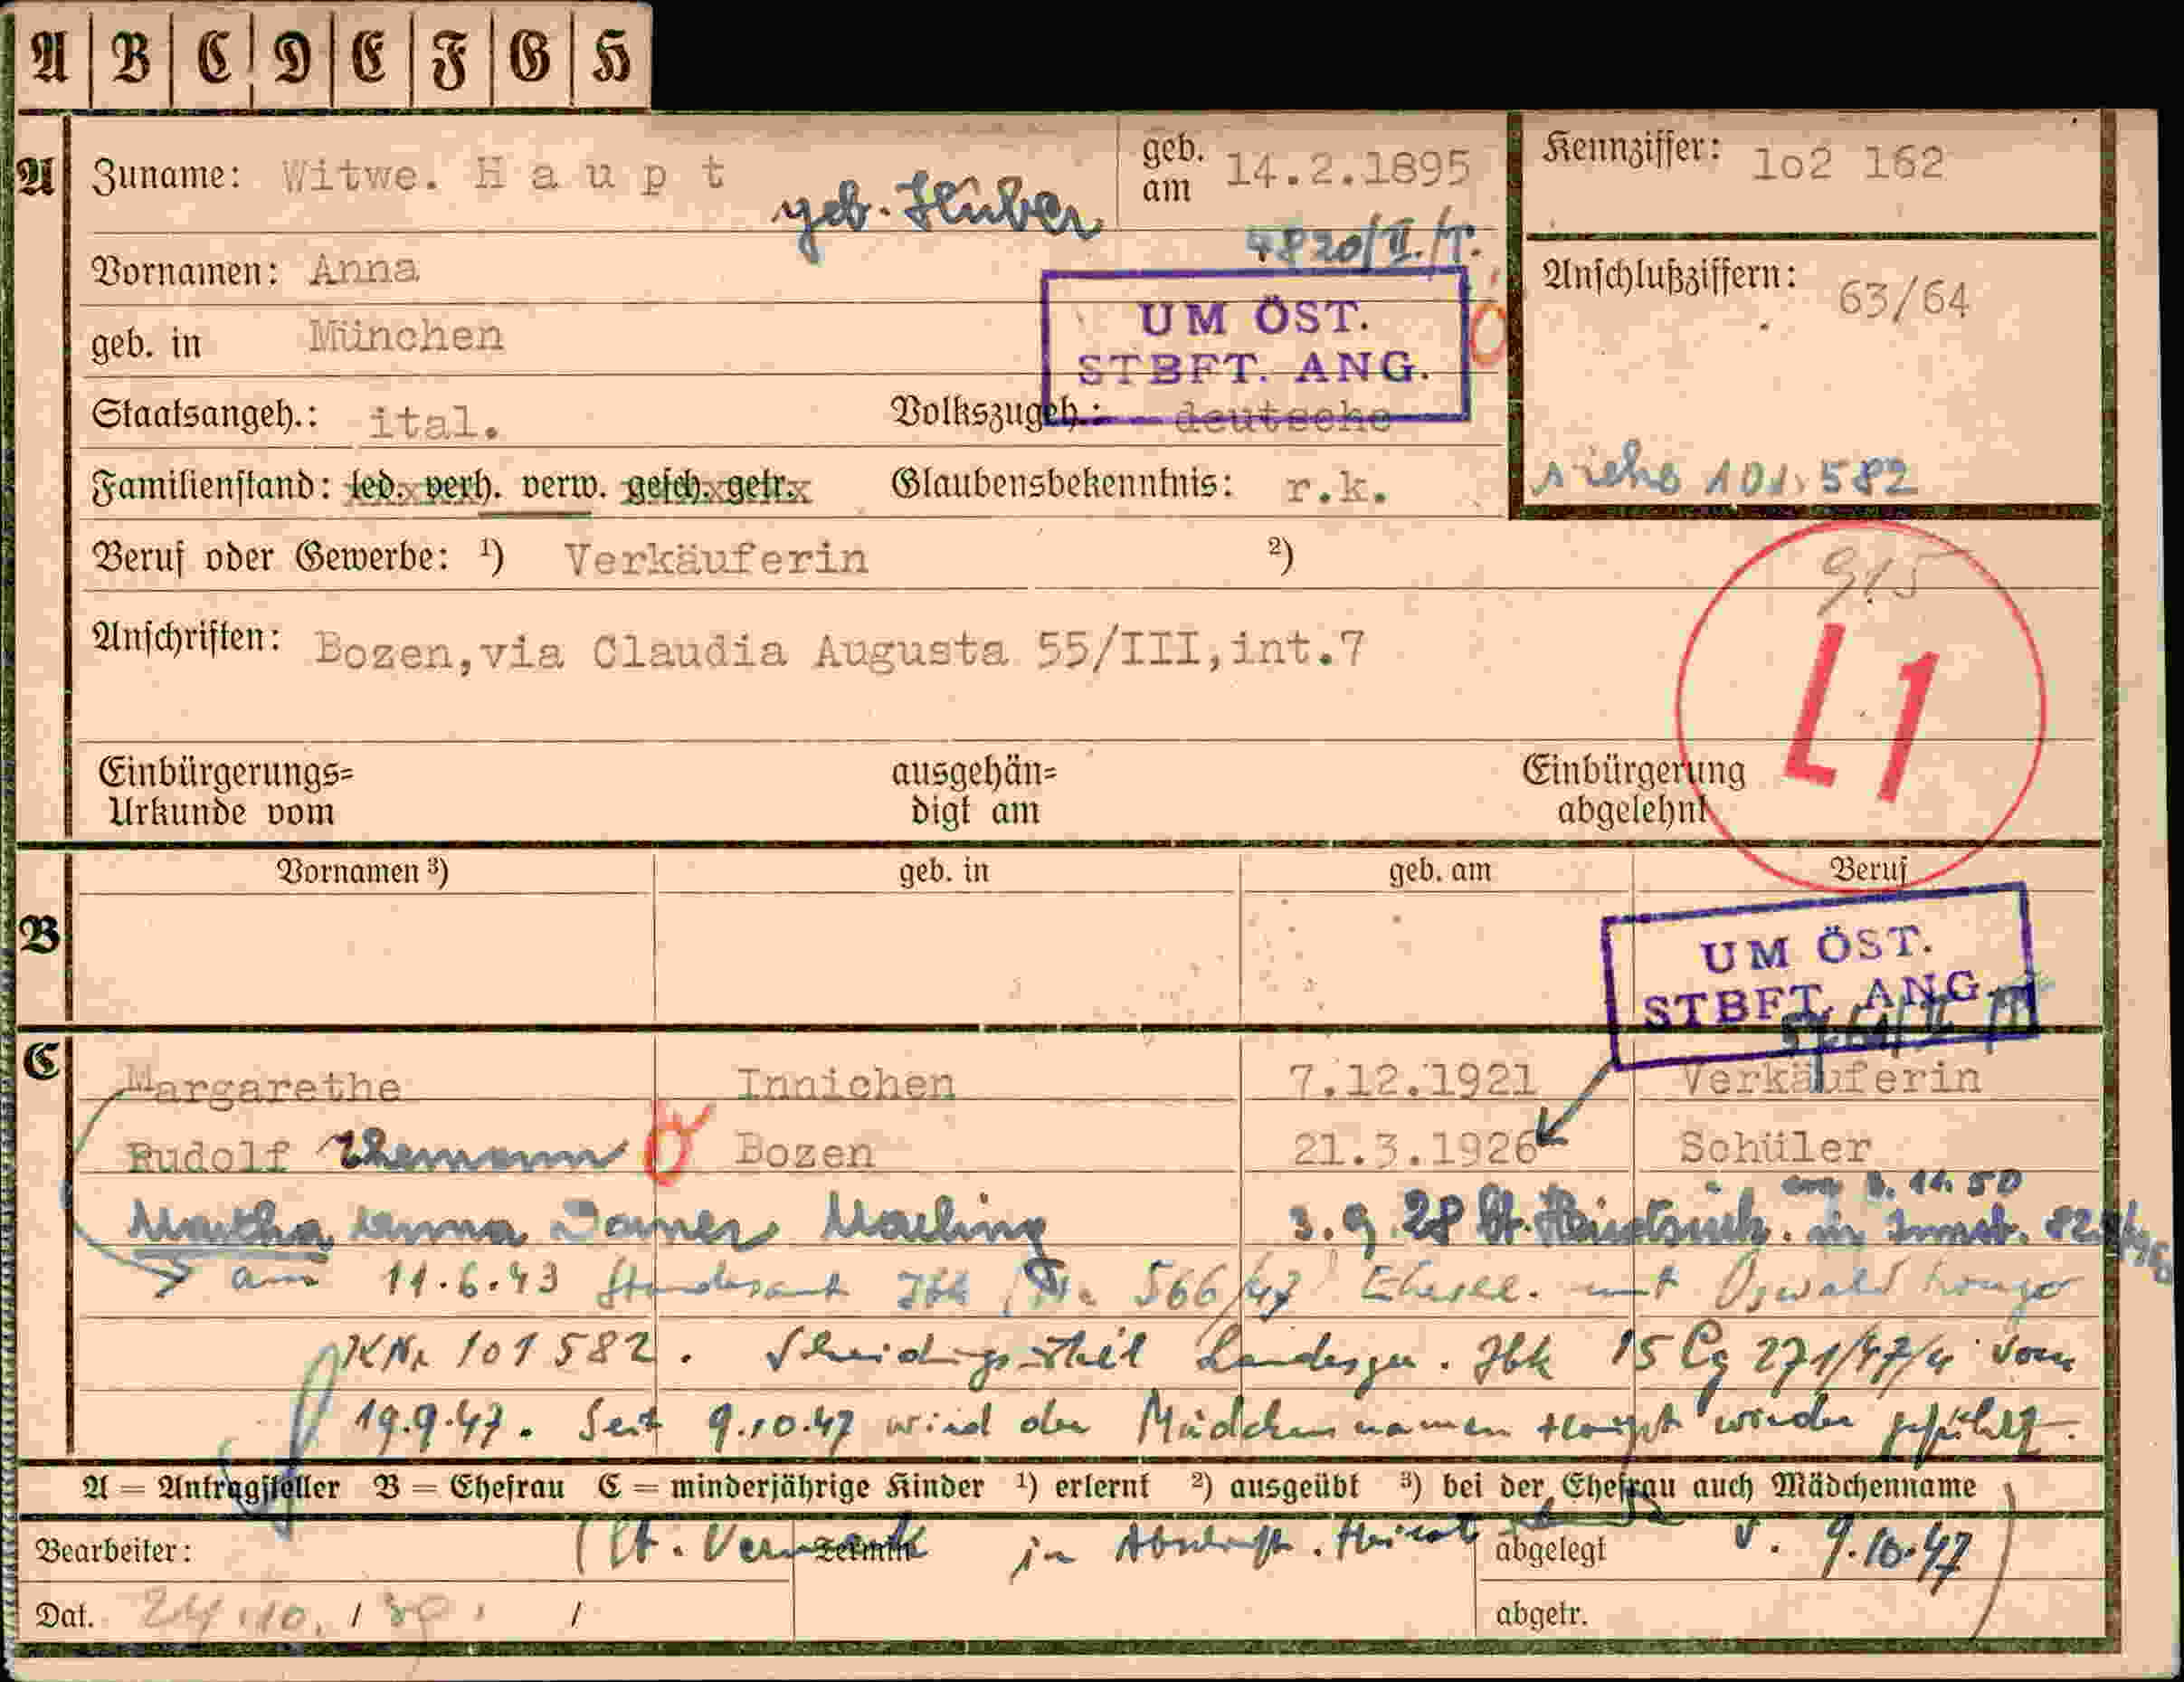 A B C D E F G H
A
Zuname: Witwe. H a u p t geb. Huber
geb. am 14.2.1895
Kennziffer: 1o2 162
4820/II./T.
Vornamen: Anna
UM ÖST.
STBFT. ANG.
Anschlußziffern: 63/64
geb. in München
Staatsangeh.: ital. Volkszugeh.: deutsche
siehe 101.582
Familienstand: led. verh. verw. gesch. getr. Glaubensbekenntnis: r.k.
Beruf oder Gewerbe: ¹) Verkäuferin ²)
L1
Anschriften: Bozen,via Claudia Augusta 55/III,int.7
Einbürgerungs= Urkunde vom
ausgehän= digt am
Einbürgerung abgelehnt
Vornamen ³) geb. in geb. am Beruf
B
UM ÖST.
STBFT. ANG.
C
Margarethe Innichen 7.12.1921 Verkäuferin
Rudolf Bozen 21.3.1926 Schüler
8. 11. 50
Martha Anna 3.9.28 lt. in
am 11.6.43 Standesamt Ibk Nr. 566/43 Ehesl. mit Oswald
KNr 101 582. Scheidungsurteil Landesger. Ibk 15 Cg 271/47/4 vom
19.9.47. Seit 9.10.47 wird der Mädchennamen Haupt wieder geführt.
A = Antragsteller B = Ehefrau C = minderjährige Kinder ¹) erlernt ²) ausgeübt ³) bei der Ehefrau auch Mädchenname
Bearbeiter: (lt. Vermerk in Abschrift. Heirats abgelegt v. 9.10.47)
Dat. 24.10. / 39. / abgetr.